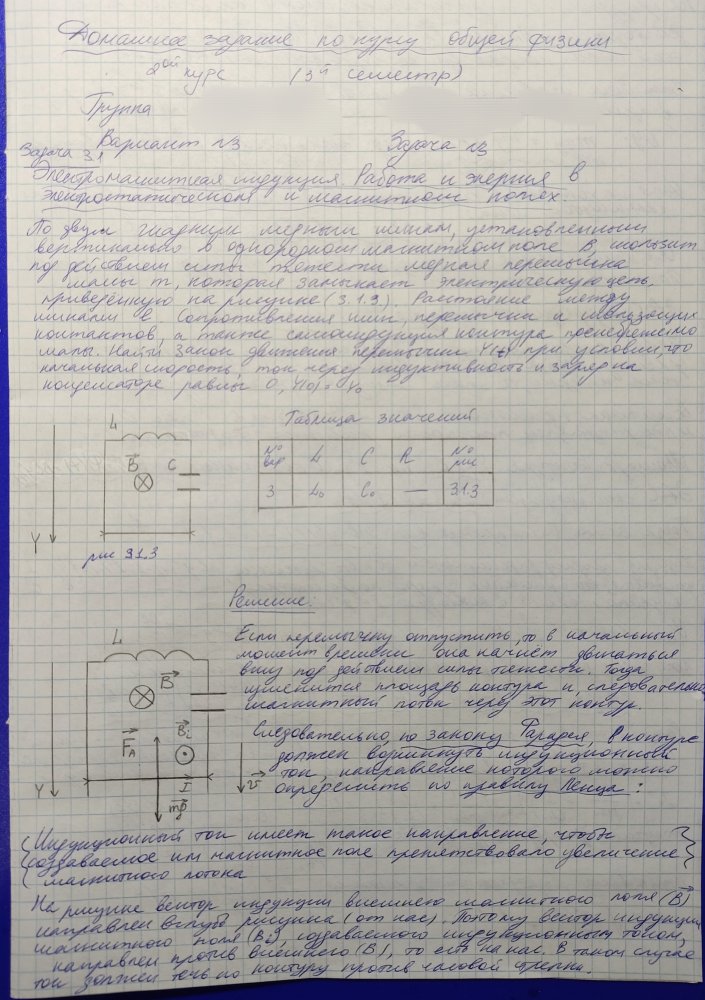 Домашнее задание по курсу общей физики
2ой курс (3й семестр)
Группа
Вариант №3 Задача №3
Задача 3.1
Электромагнитная индукция. Работа и энергия в
электростатическом и магнитном полях.
По двум гладким медным шинам, установленным
вертикально в однородном магнитном поле B скользит
под действием силы тяжести медная перемычка
массы m, которая замыкает электрическую цепь,
приведенную на рисунке (3.1.3). Расстояние между
шинами l. Сопротивления шин, перемычки и скользящих
контактов, а также самоиндукция контура пренебрежимо
малы. Найти закон движения перемычки Y(t) при условии, что
начальная скорость, ток через индуктивность и заряд на
конденсаторе равны 0, Y(0) = Y₀
Таблица значений
№ вар L C R № рис
3 L₀ C₀ — 3.1.3
L
B C
Y
рис 3.1.3
Решение:
Если перемычку отпустить, то в начальный
момент времени она начнет двигаться
вниз под действием силы тяжести. Тогда
изменится площадь контура и, следовательно
магнитный поток через этот контур.
Следовательно, по закону Фарадея, в контуре
должен возникнуть индукционный
ток, направление которого можно
определить по правилу Ленца:
L
B
Bi
FA
I
Y
mg
v
Индукционный ток имеет такое направление, чтобы
создаваемое им магнитное поле препятствовало увеличение
магнитного потока
На рисунке вектор индукции внешнего магнитного поля (B)
направлен вглубь рисунка (от нас). Поэтому вектор индукции
магнитного поля (Bi), создаваемого индукционным током,
направлен против внешнего (B), то есть на нас. В таком случае
ток должен течь по контуру против часовой стрелки.